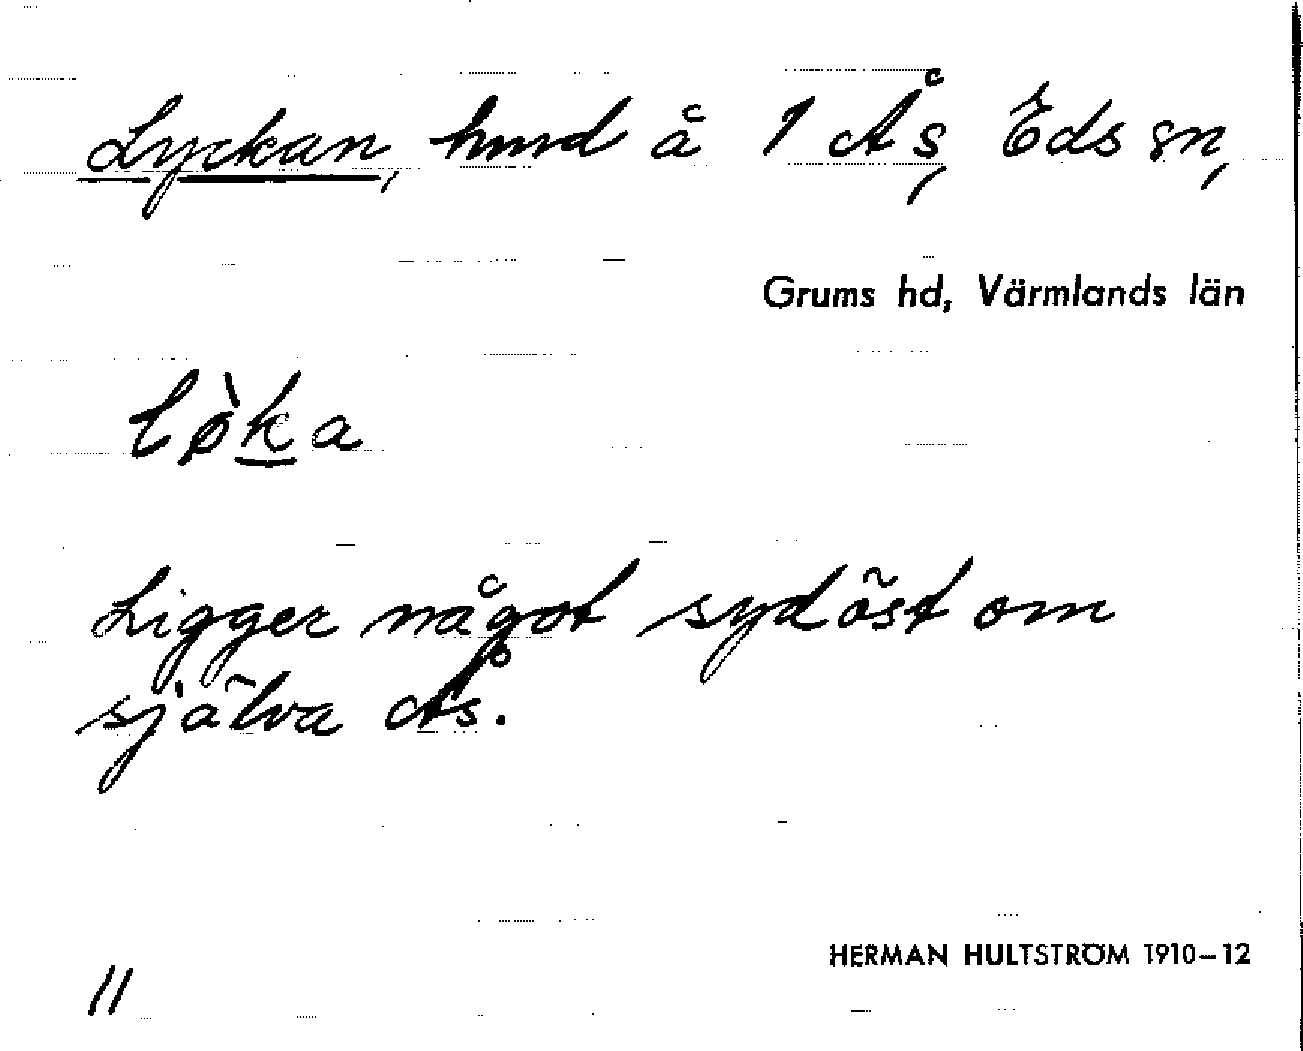 Lyckan, hmd å 1 Ås, Eds sn,
Grums hd, Värmlands län
lø̀ka
Ligger något sydöst om
själva Ås.
HERMAN HULTSTRÖM 1910–12
11